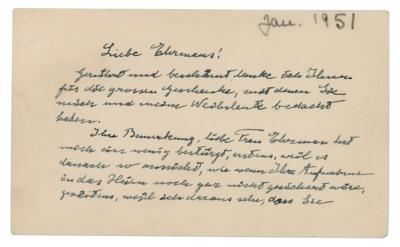 Jan. 1951
Liebe Ehrmans!
Gerührt und beschämt danke ich Ihnen
für die grossen Geschenke, mit denen Sie
mich und meine Weibsleute bedacht
haben.
Ihre Bemerkung, liebe Frau Ehrman hat
mich ein wenig bestürzt, erstens, weil es
danach so aussieht, wie wenn Ihre Aufnahme
in das Heim noch gar nicht gesichert wäre,
zweitens, weil ich daraus sehe, dass Sie